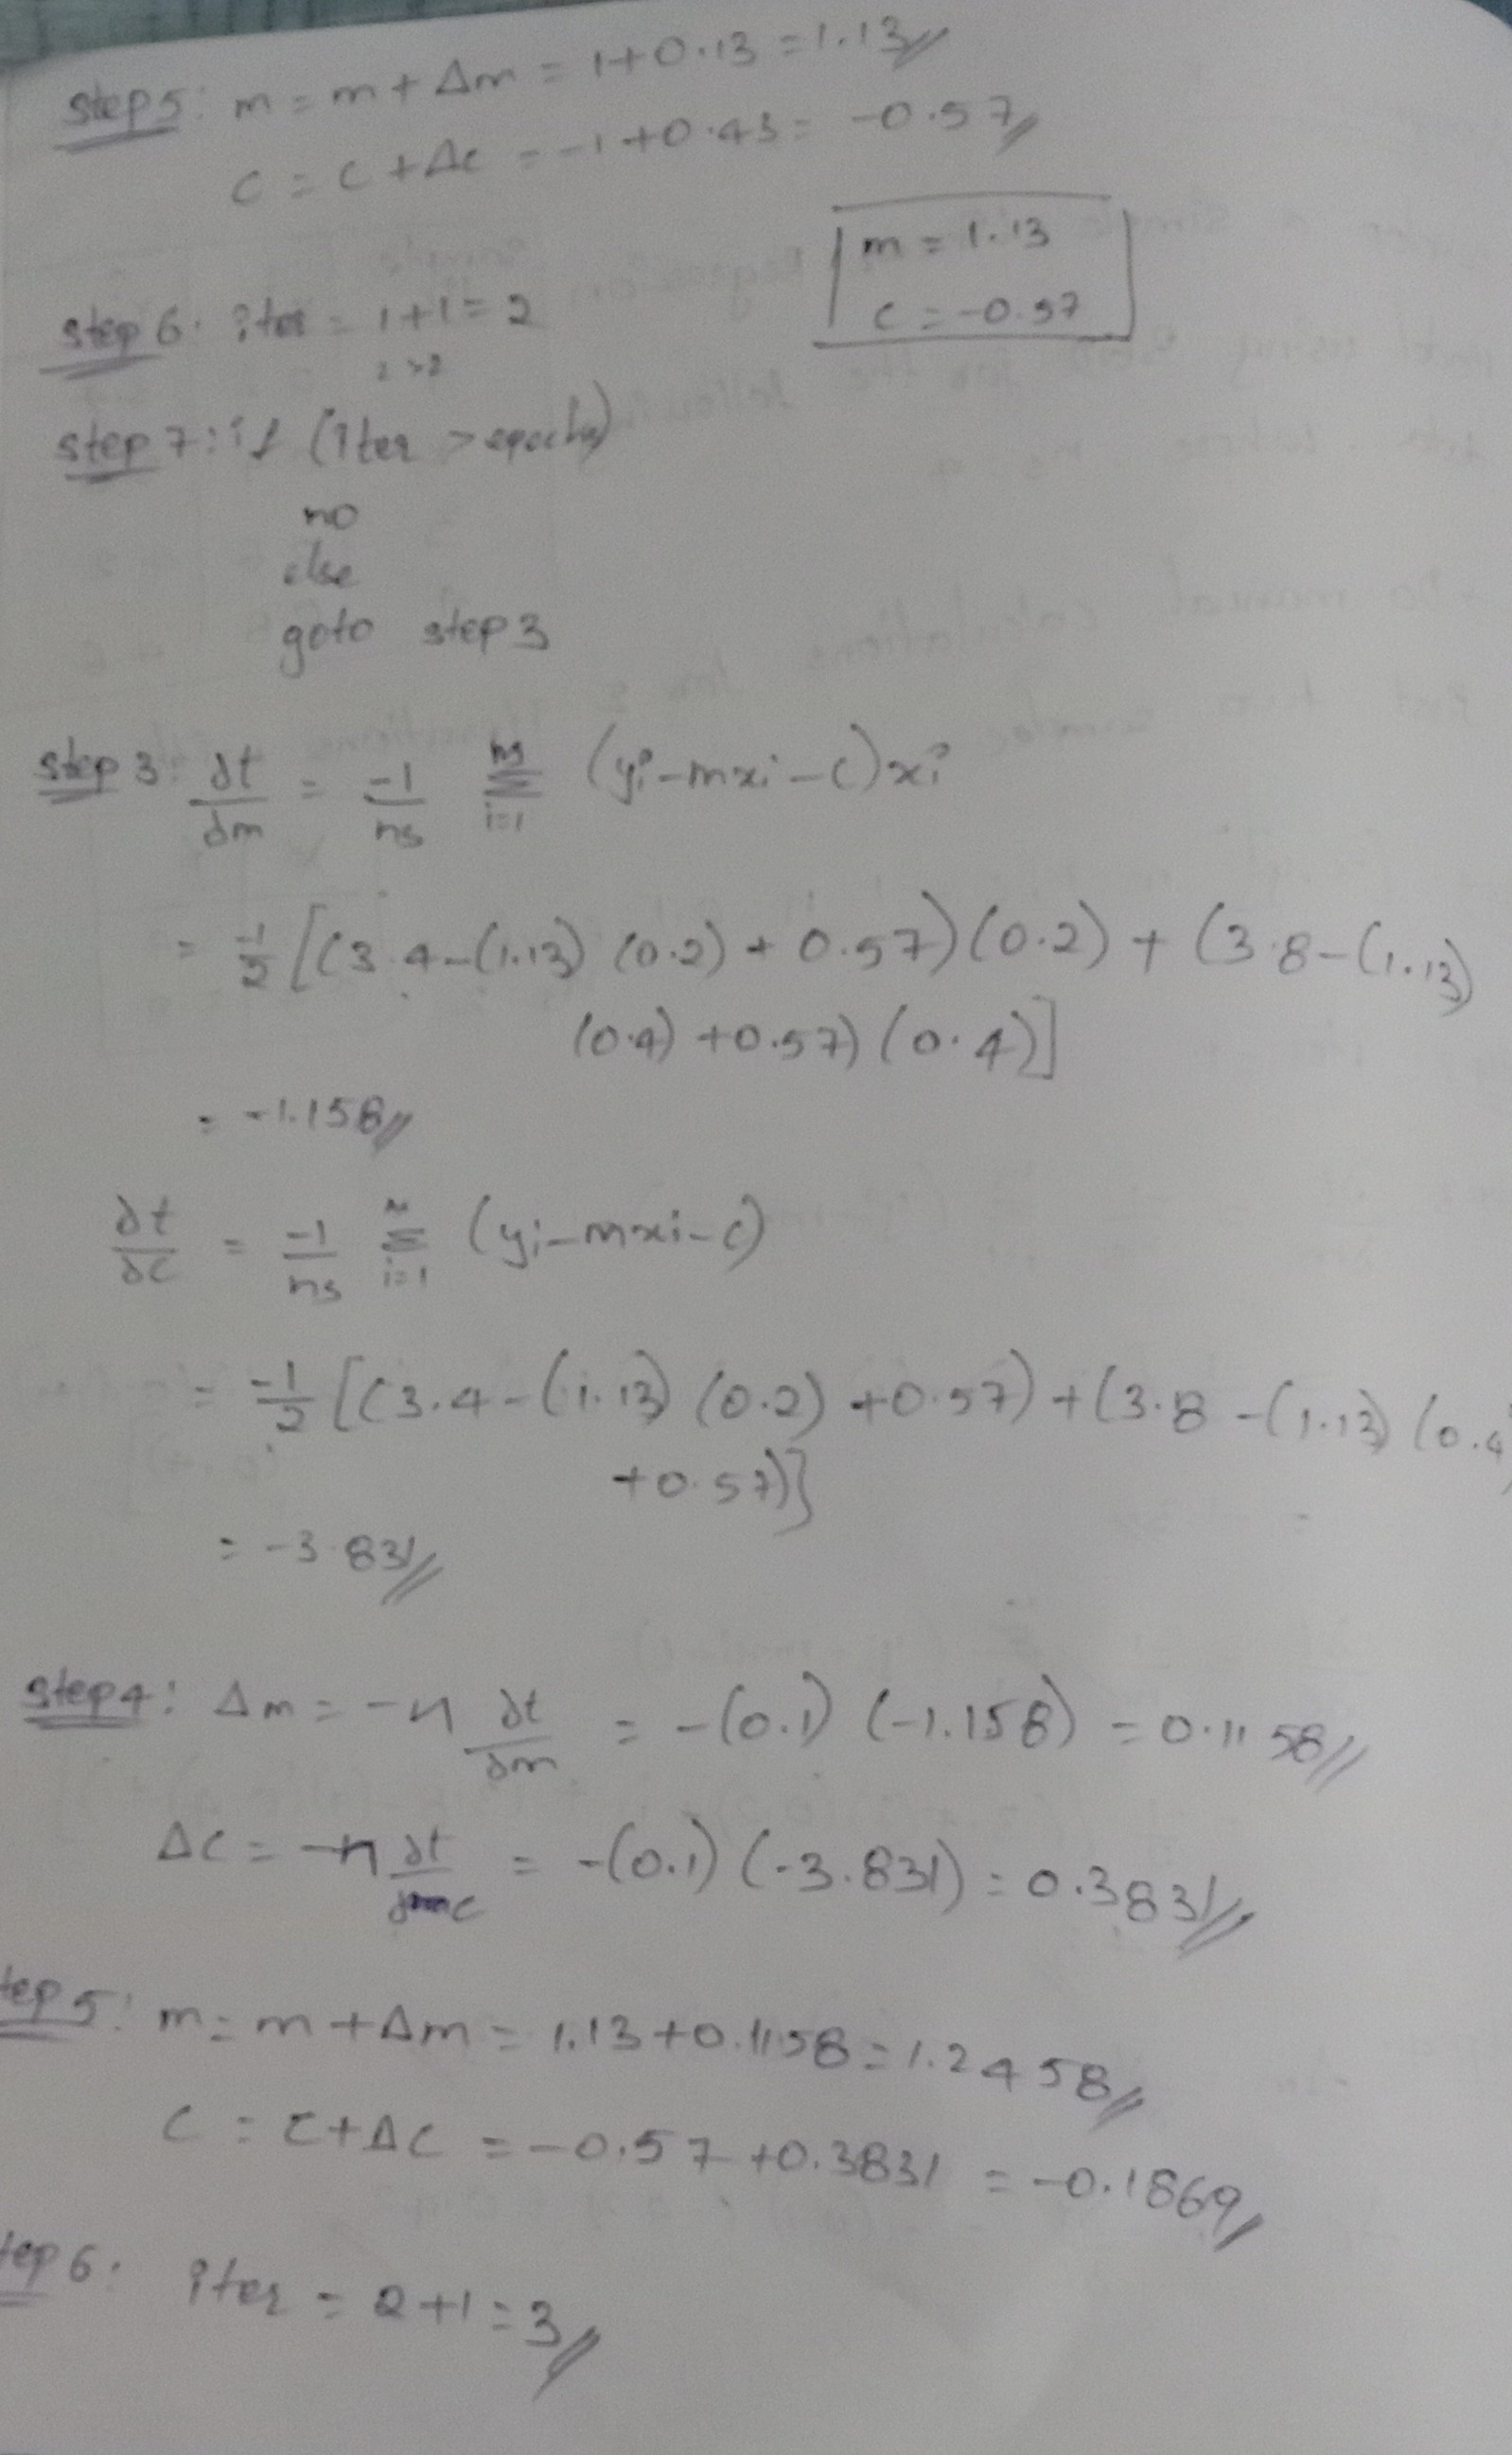 step 5: m = m + Δm = 1+0.13 = 1.13//
c = c + Δc = -1+0.43 = -0.57//
m = 1.13
c = -0.57
step 6: iter = 1+1 = 2
2 > 2
step 7: if (iter > epochs)
no
else
goto step 3
step 3: ∂t/∂m = -1/ns Σ_{i=1}^{ns} (yi - mxi - c) xi
= -1/2 [(3.4 - (1.13) (0.2) + 0.57) (0.2) + (3.8 - (1.13)
(0.4) + 0.57) (0.4)]
= -1.158//
∂t/∂c = -1/ns Σ_{i=1} (yi - mxi - c)
= -1/2 [(3.4 - (1.13) (0.2) + 0.57) + (3.8 - (1.13) (0.4)
+ 0.57)}
= -3.831//
step 4: Δm = -η ∂t/∂m = -(0.1) (-1.158) = 0.1158//
Δc = -η ∂t/∂c = -(0.1) (-3.831) = 0.3831//
tep 5: m = m + Δm = 1.13 + 0.1158 = 1.2458//
c = c + Δc = -0.57 + 0.3831 = -0.1869//
tep 6: iter = 2+1 = 3//